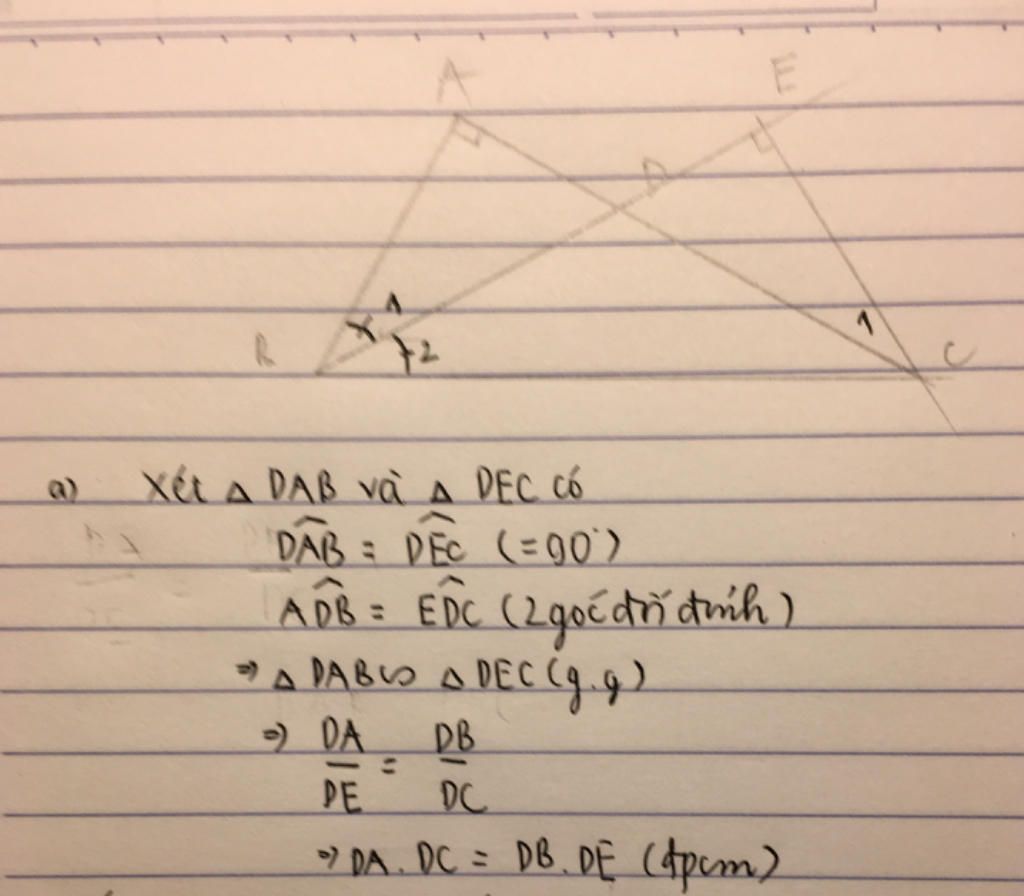 A
E
D
B
1
2
1
C
a) Xét △ DAB và △ DEC có
D̂AB = D̂EC (=90°)
AD̂B = ED̂C (2 góc đối đỉnh)
⇒ △ DAB ∽ △ DEC (g.g)
⇒ DA/DE = DB/DC
⇒ DA.DC = DB.DE (đpcm)